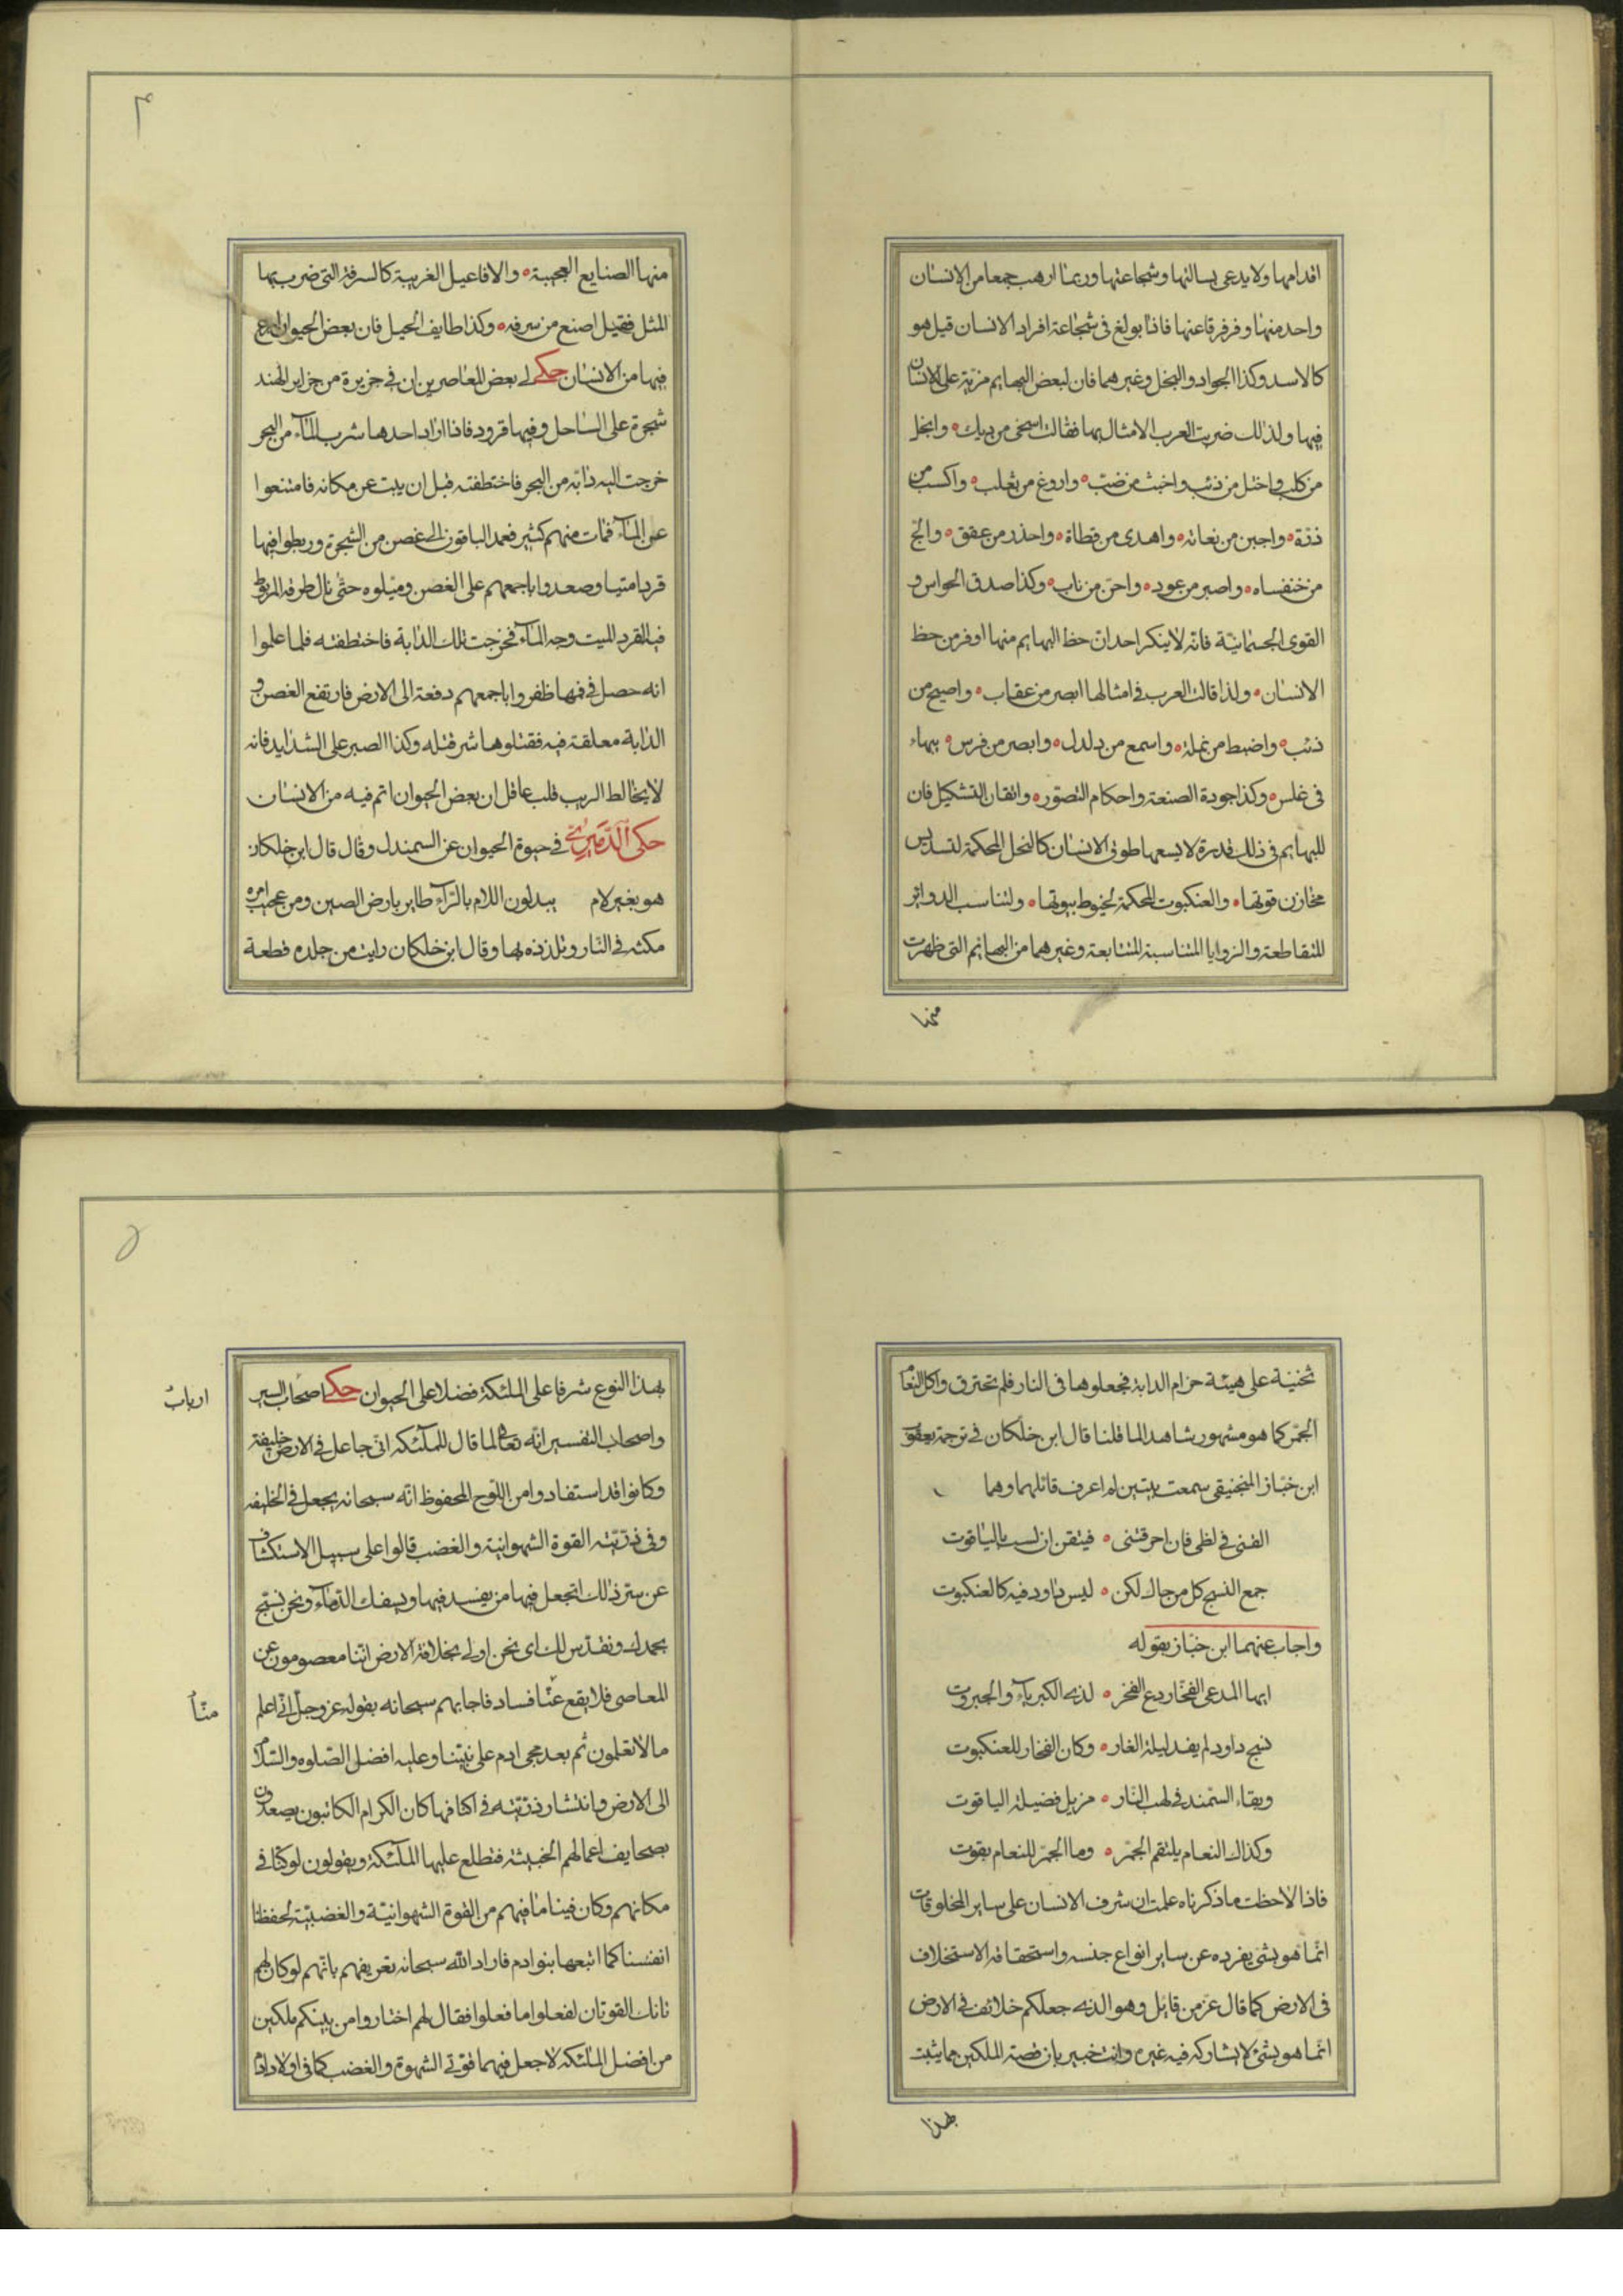 اقدامها ولا يدعى بسالتها وشجاعتها وربما ارهب جمعا من الانسان
واحد منها وفر فرقا عنها فاذا بولغ في شجاعة افراد الانسان قيل هو
كالاسد وكذا الجواد والبخل وغيرهما فان لبعض البهايم مزية على الانسان
فيها ولذلك ضربت العرب الامثال بها فقالت اسخى من ديك وابخل
من كلب واختل من ذئب واخبث من ضب واروغ من ثعلب واكسب من
ذرة واجبن من نعامة واهدى من قطاة واحذر من عقعق والج
من خنفساء واصبر من عود واحن من ناب وكذا صدق الحواس و
القوى الجسمانية فانه لا ينكر احد ان حظ البهايم منها اوفر من حظ
الانسان ولذا قالت العرب في امثالها ابصر من عقاب واصيح من
ذئب واضبط من نملة واسمع من دلدل وابصر من فرس بيهماء
في غلس وكذا جودة الصنعة واحكام التصور واتقان التشكيل فان
للبهايم في ذلك قدرة لا يسعها طوق الانسان كالنحل المحكمة لتسديس
مخازن قوتها والعنكبوت المحكمة لخيوط بيوتها ولتناسب الدوائر
المتقاطعة والزوايا المتناسبة المتتابعة وغيرهما من البهائم التي ظهرت
منها
منها الصنايع العجيبة والافاعيل الغريبة كالسرفة التي ضرب بها
المثل فقيل اصنع من سرفه وكذا لطايف الحيل فان بعض الحيوان ابدع
فيها من الانسان حكى لي بعض المعاصرين ان في جزيرة من جزاير الهند
شجرة على الساحل وفيها قرود فاذا اراد احدها شرب الماء من البحر
خرجت اليه دابة من البحر فاختطفته قبل ان يبت عن مكانه فامتنعوا
عن الماء فمات منهم كثير فعمد الباقون الى غصن من الشجرة وربطوا فيها
قردا ميتا وصعدوا باجمعهم على الغصن وميلوه حتى نال طرفه المربوط
فيه القرد الميت وجه الماء فخرجت تلك الدابة فاختطفته فلما علموا
انه حصل في فمها ظفروا باجمعهم دفعة الى الارض فارتفع الغصن و
الدابة معلقة فيه فقتلوها شر قتله وكذا الصبر على الشدايد فانه
لا يخالط الريب قلب عاقل ان بعض الحيوان اتم فيه من الانسان
حكى الدميري في حيوة الحيوان عن السمندل وقال قال ابن خلكان
هو بغير لام يبدلون اللام بالراء طاير بارض الصين ومن عجيب امره
مكثه في النار وتلذذه بها وقال ابن خلكان رايت من جلده قطعة
ثخنية على هيئة حزام الدابة فجعلوها في النار فلم تحترق واكل النعام
الجمر كما هو مشهور شاهد لما قلنا قال ابن خلكان في ترجمة يعقوب
ابن خباز المنجنيقي سمعت بيتين لم اعرف قائلهما وهما
القني في لظى فان احرقتني فتيقن ان لست بالياقوت
جمع النسج كل من حاك لكن ليس داود فيه كالعنكبوت
واجاب عنهما ابن خباز بقوله
ايها المدعى الفخار دع الفخر لذي الكبرياء والجبروت
نسج داود لم يفد ليلة الغار وكان الفخار للعنكبوت
وبقاء السمند في لهب النار مزيل فضيلة الياقوت
وكذاك النعام يلتقم الجمر وما الجمر للنعام بقوت
فاذا لاحظت ما ذكرناه علمت ان شرف الانسان على ساير المخلوقات
انما هو بشئ يفرده عن ساير انواع جنسه واستحقاقه الاستخلاف
في الارض كما قال عز من قايل وهو الذي جعلكم خلائف في الارض
انما هو بشئ لا يشاركه فيه غيره وانت خبير بان قصة الملكين مما يثبت
لهذا
لهذا النوع شرفا على الملئكة فضلا على الحيوان حكى اصحاب السير
ارباب
واصحاب التفسير انه تعالى لما قال للملئكة اني جاعل في الارض خليفة
وكانوا قد استفادوا من اللوح المحفوظ انه سبحانه يجعل في الخليفه
وفي ذريته القوة الشهوانية والغضب قالوا على سبيل الاستكشاف
عن سر ذلك اتجعل فيها من يفسد فيها ويسفك الدماء ونحن نسبح
بحمدك ونقدس لك اي نحن اولى بخلافة الارض اننا معصومون عن
المعاصي فلا يقع عنا فساد فاجابهم سبحانه بقوله عز وجل اني اعلم
منا
ما لا تعلمون ثم بعد مجئ ادم على نبينا وعليه افضل الصلوه والسلام
الى الارض وانتشار ذريته في اكنافها كان الكرام الكاتبون يصعدون
بصحايف اعمالهم الخبيثة فتطلع عليها الملئكة ويقولون لو كنا في
مكانهم وكان فينا ما فيهم من القوة الشهوانية والغضبية لحفظنا
انفسنا كما اتبعها بنو ادم فاراد الله سبحانه تعريفهم بانهم لو كان لهم
تانك القوتان لفعلوا ما فعلوا فقال لهم اختاروا من بينكم ملكين
من افضل الملئكه لاجعل فيهما قوتي الشهوة والغضب كما في اولاد ادم